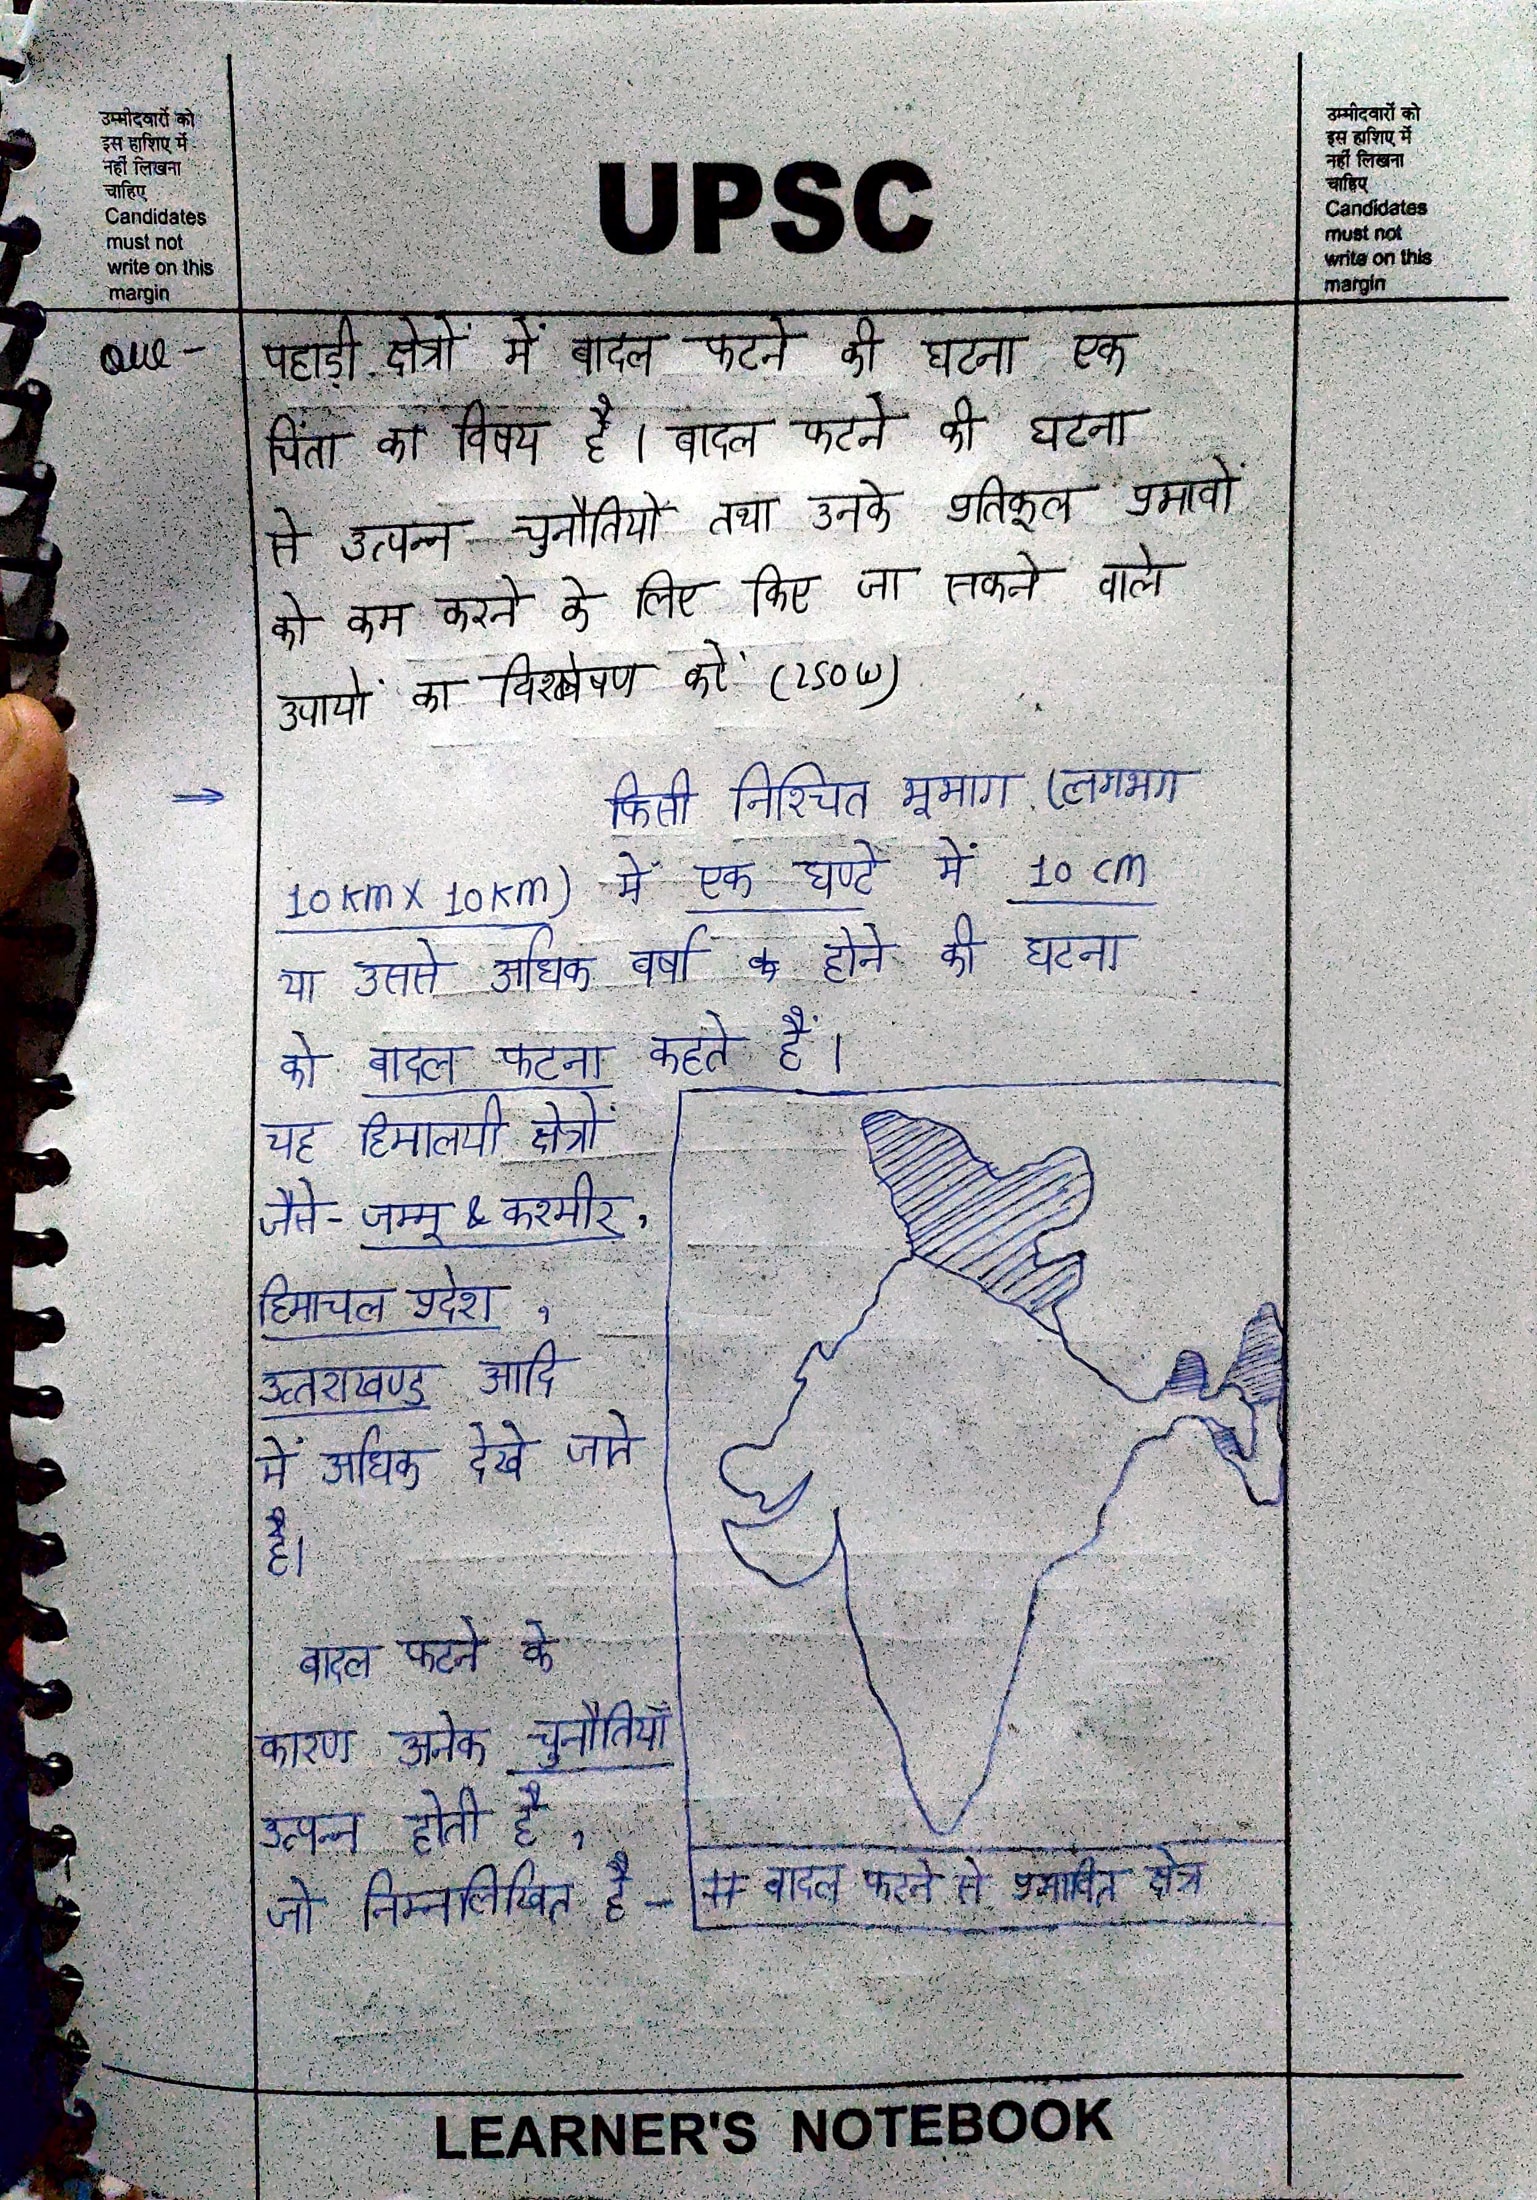 उम्मीदवारों को
इस हाशिए में
नहीं लिखना
चाहिए
Candidates
must not
write on this
margin
UPSC
उम्मीदवारों को
इस हाशिए में
नहीं लिखना
चाहिए
Candidates
must not
write on this
margin
Que -
पहाड़ी क्षेत्रों में बादल फटने की घटना एक
चिंता का विषय है। बादल फटने की घटना
से उत्पन्न चुनौतियों तथा उनके प्रतिकूल प्रभावों
को कम करने के लिए किए जा सकने वाले
उपायों का विश्लेषण करें (250W)
→ किसी निश्चित भूभाग (लगभग
10 km x 10 km) में एक घण्टे में 10 cm
या उससे अधिक वर्षा होने की घटना
को बादल फटना कहते हैं।
यह हिमालयी क्षेत्रों
जैसे- जम्मू & कश्मीर,
हिमाचल प्रदेश,
उत्तराखण्ड आदि
में अधिक देखे जाते
है।
बादल फटने के
कारण अनेक चुनौतियाँ
उत्पन्न होती है,
जो निम्नलिखित है -
# बादल फटने से प्रभावित क्षेत्र
LEARNER'S NOTEBOOK